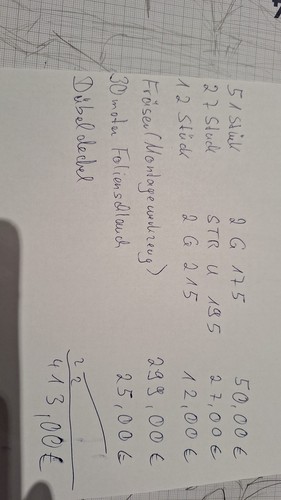 51 Stück 2G 175 50,00€
27 Stück STR U 195 27,00€
12 Stück 2G 215 12,00€
Fräser (Montagewerkzeug) 299,00€
30 meter Folienschlauch 25,00€
Dübeldeckel
413,00€